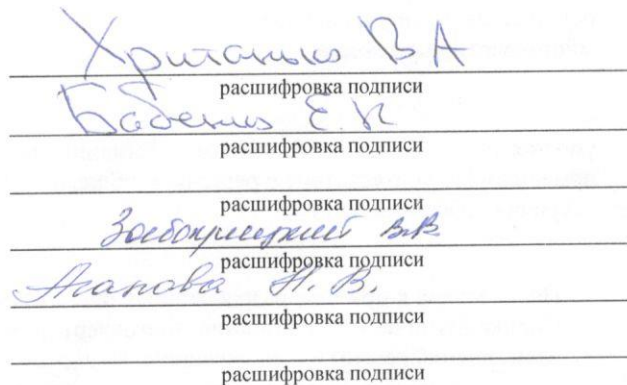 Хританько В А
расшифровка подписи
Бабенко Е.К
расшифровка подписи
расшифровка подписи
В.В
расшифровка подписи
Агапова Н. В.
расшифровка подписи
расшифровка подписи